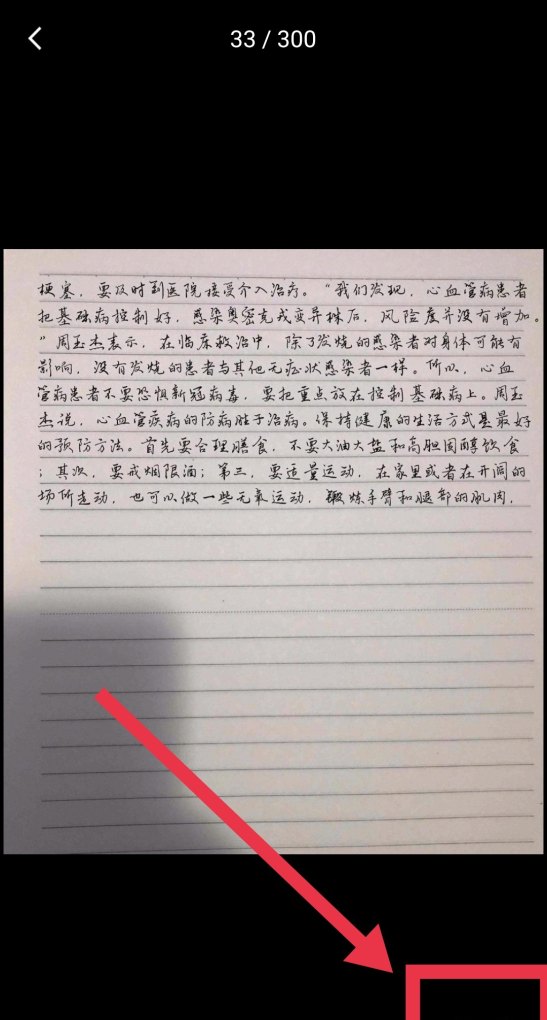 33 / 300
梗塞，要及时到医院接受介入治疗。“我们发现，心血管病患者
把基础病控制好，感染奥密克戎变异株后，风险度并没有增加。
”周玉杰表示，在临床救治中，除了发烧的感染者对身体可能有
影响，没有发烧的患者与其他无症状感染者一样。所以，心血
管病患者不要恐惧新冠病毒，要把重点放在控制基础病上。周玉
杰说，心血管疾病的防病胜于治病。保持健康的生活方式是最好
的预防方法。首先要合理膳食，不要大油大盐和高胆固醇饮食
；其次，要戒烟限酒；第三，要适量运动，在家里或者在开阔的
场所走动，也可以做一些无氧运动，锻炼手臂和腿部的肌肉，